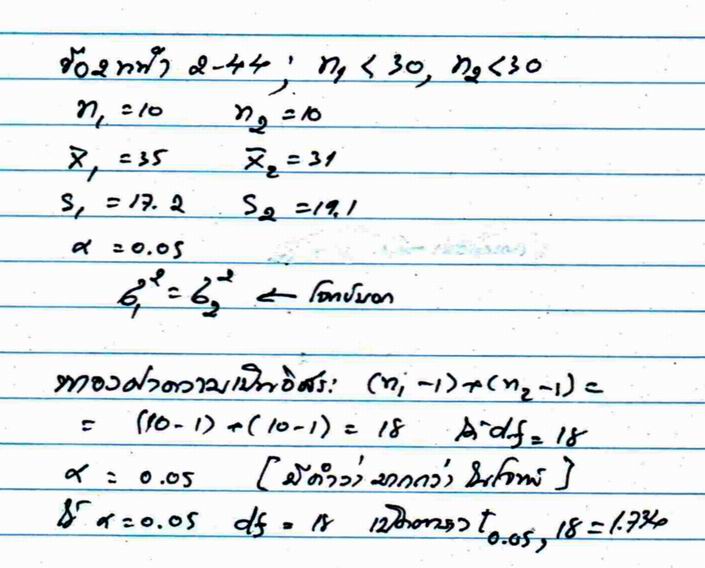 ข้อ2หน้า 2-44 ; n₁ < 30, n₂ < 30
n₁ = 10 n₂ = 10
x̄₁ = 35 x̄₂ = 31
S₁ = 17.2 S₂ = 19.1
α = 0.05
σ₁² = σ₂² ← โจทย์บอก
หาองศาความเป็นอิสระ (n₁ -1) + (n₂ -1) =
= (10-1) + (10-1) = 18 df = 18
α = 0.05 [มีคำว่า มากกว่า ในโจทย์]
ที่ α = 0.05 df = 18 เปิดตาราง t₀.₀₅, 18 = 1.734